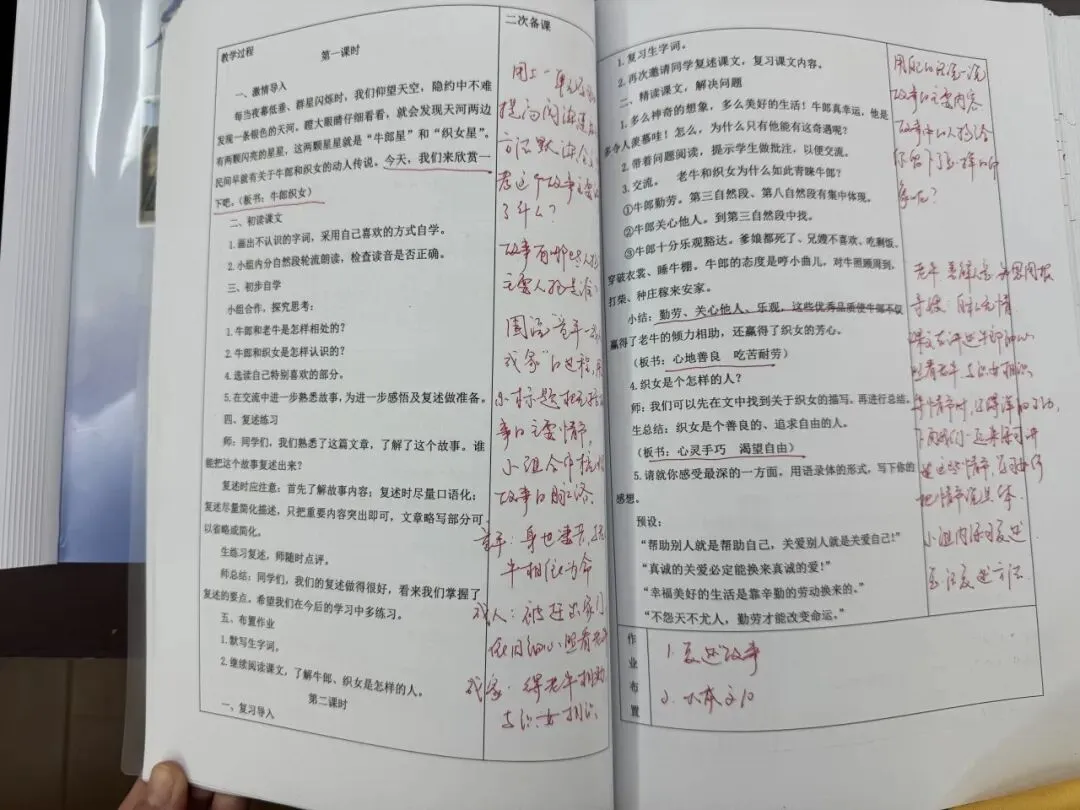 教学过程
第一课时
一、激情导入
每当夜幕低垂、群星闪烁时，我们仰望天空，隐约中不难
发现一条银色的天河，瞪大眼睛仔细看看，就会发现天河两边
有两颗闪亮的星星，这两颗星星就是“牛郎星”和“织女星”。
民间早就有关于牛郎和织女的动人传说。今天，我们来欣赏一
下吧。（板书：牛郎织女）
二、初读课文
1.画出不认识的字词，采用自己喜欢的方式自学。
2.小组内分自然段轮流朗读，检查读音是否正确。
三、初步自学
小组合作，探究思考：
1.牛郎和老牛是怎样相处的？
2.牛郎和织女是怎样认识的？
4.选读自己特别喜欢的部分。
5.在交流中进一步熟悉故事，为进一步感悟及复述做准备。
四、复述练习
师：同学们，我们熟悉了这篇文章，了解了这个故事。谁
能把这个故事复述出来？
复述时应注意：首先了解故事内容；复述时尽量口语化；
复述尽量简化描述，只把重要内容突出即可，文章略写部分可
以省略或简化。
生练习复述，师随时点评。
师总结：同学们，我们的复述做得很好，看来我们掌握了
复述的要点。希望我们在今后的学习中多练习。
五、布置作业
1.默写生字词。
2.继续阅读课文，了解牛郎、织女是怎样的人。
第二课时
一、复习导入
二次备课
用上一单元
提高阅读速度
方法默读
这个故事主要
了什么？
故事有哪些人物
主要人物是
围绕童年
成家”的过程，用
小标题
事的主要情节，
小组合作梳理
故事的脉络
童年：身世凄苦，
牛相依为命
成人：被赶出家门
照看老牛
成家：得老牛相助
与织女相识
1.复习生字词。
2.再次邀请同学复述课文，复习课文内容。
二、精读课文，解决问题
1.多么神奇的想象，多么美好的生活！牛郎真幸运，他是
多令人羡慕哇！怎么，为什么只有他能有这奇遇呢？
2.带着问题阅读，提示学生做批注，以便交流。
3.交流。 老牛和织女为什么如此青睐牛郎？
①牛郎勤劳。第三自然段、第八自然段有集中体现。
②牛郎关心他人。到第三自然段中找。
③牛郎十分乐观豁达。爹娘都死了、兄嫂不喜欢、吃剩饭、
穿破衣裳、睡牛棚。牛郎的态度是哼小曲儿，对牛照顾周到，
打柴、种庄稼来安家。
小结：勤劳、关心他人、乐观，这些优秀品质使牛郎不仅
赢得了老牛的倾力相助，还赢得了织女的芳心。
（板书：心地善良 吃苦耐劳）
4.织女是个怎样的人？
师：我们可以先在文中找到关于织女的描写，再进行总结。
生总结：织女是个善良的、追求自由的人。
（板书：心灵手巧 渴望自由）
5.请就你感受最深的一方面，用语录体的形式，写下你的
感想。
预设：
“帮助别人就是帮助自己，关爱别人就是关爱自己！”
“真诚的关爱必定能换来真诚的爱！”
“幸福美好的生活是靠辛勤的劳动换来的。”
“不怨天不尤人，勤劳才能改变命运。”
用自己的话说一说
故事的主要内容
故事中的人物给
你留下了怎样的印
象呢？
老牛 善解人意 知恩图报
哥嫂：自私无情
课文在讲述牛郎
照看老牛 与织女相识
等情节时，写得
下面我们一起来
这些情节
把情节说具体。
小组内练习复述
复述方法
作业布置
1.复述故事
2.